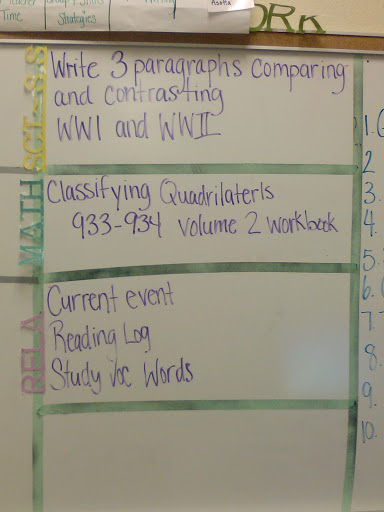 Time
Strategies
Asotta
ORK
SCI-S.S
Write 3 paragraphs comparing
and contrasting
WWI and WWII
MATH
Classifying Quadrilaterls
933-934 Volume 2 workbook
RELA
Current event
Reading Log
Study Voc Words
1.
2
3.
4.
5.
6.
7.
8.
9.
10.